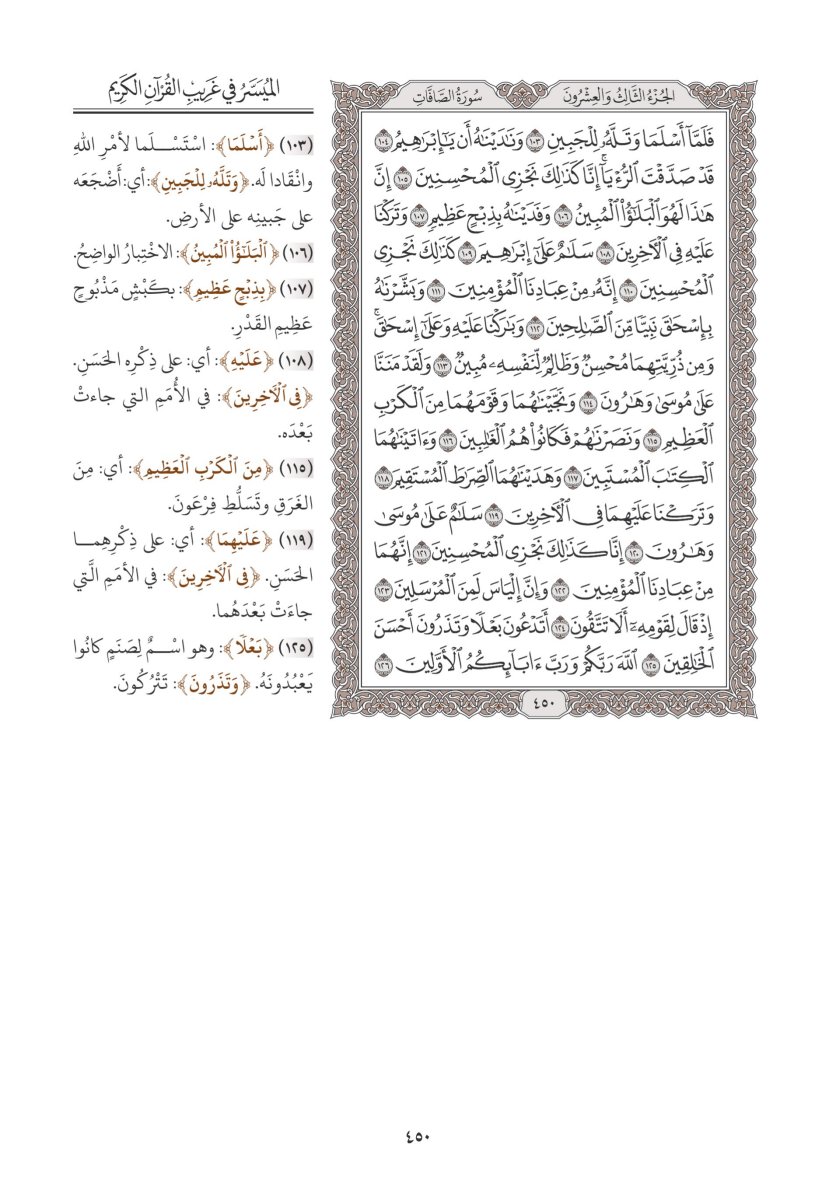 الجُزْءُ الثَّالِثُ وَالعِشْرُونَ
سُورَةُ الصَّافَّاتِ
فَلَمَّآ أَسْلَمَا وَتَلَّهُۥ لِلْجَبِينِ ١٠٣ وَنَٰدَيْنَٰهُ أَن يَٰٓإِبْرَٰهِيمُ ١٠٤
قَدْ صَدَّقْتَ ٱلرُّءْيَآۚ إِنَّا كَذَٰلِكَ نَجْزِى ٱلْمُحْسِنِينَ ١٠٥ إِنَّ
هَٰذَا لَهُوَ ٱلْبَلَٰٓؤُا۟ ٱلْمُبِينُ ١٠٦ وَفَدَيْنَٰهُ بِذِبْحٍ عَظِيمٍ ١٠٧ وَتَرَكْنَا
عَلَيْهِ فِى ٱلْءَاخِرِينَ ١٠٨ سَلَٰمٌ عَلَىٰٓ إِبْرَٰهِيمَ ١٠٩ كَذَٰلِكَ نَجْزِى
ٱلْمُحْسِنِينَ ١١٠ إِنَّهُۥ مِنْ عِبَادِنَا ٱلْمُؤْمِنِينَ ١١١ وَبَشَّرْنَٰهُ
بِإِسْحَٰقَ نَبِيًّا مِّنَ ٱلصَّٰلِحِينَ ١١٢ وَبَٰرَكْنَا عَلَيْهِ وَعَلَىٰٓ إِسْحَٰقَۚ
وَمِن ذُرِّيَّتِهِمَا مُحْسِنٌ وَظَالِمٌ لِّنَفْسِهِۦ مُبِينٌ ١١٣ وَلَقَدْ مَنَنَّا
عَلَىٰ مُوسَىٰ وَهَٰرُونَ ١١٤ وَنَجَّيْنَٰهُمَا وَقَوْمَهُمَا مِنَ ٱلْكَرْبِ
ٱلْعَظِيمِ ١١٥ وَنَصَرْنَٰهُمْ فَكَانُوا۟ هُمُ ٱلْغَٰلِبِينَ ١١٦ وَءَاتَيْنَٰهُمَا
ٱلْكِتَٰبَ ٱلْمُسْتَبِينَ ١١٧ وَهَدَيْنَٰهُمَا ٱلصِّرَٰطَ ٱلْمُسْتَقِيمَ ١١٨
وَتَرَكْنَا عَلَيْهِمَا فِى ٱلْءَاخِرِينَ ١١٩ سَلَٰمٌ عَلَىٰ مُوسَىٰ
وَهَٰرُونَ ١٢٠ إِنَّا كَذَٰلِكَ نَجْزِى ٱلْمُحْسِنِينَ ١٢١ إِنَّهُمَا
مِنْ عِبَادِنَا ٱلْمُؤْمِنِينَ ١٢٢ وَإِنَّ إِلْيَاسَ لَمِنَ ٱلْمُرْسَلِينَ ١٢٣
إِذْ قَالَ لِقَوْمِهِۦٓ أَلَا تَتَّقُونَ ١٢٤ أَتَدْعُونَ بَعْلًا وَتَذَرُونَ أَحْسَنَ
ٱلْخَٰلِقِينَ ١٢٥ ٱللَّهَ رَبَّكُمْ وَرَبَّ ءَابَآئِكُمُ ٱلْأَوَّلِينَ ١٢٦
٤٥٠
المُيَسَّرُ في غَرِيبِ القُرْآنِ الكَرِيمِ
(١٠٣) ﴿أَسْلَمَا﴾: اسْتَسْلَما لأمْرِ اللهِ
وانْقَادا لَه. ﴿وَتَلَّهُۥ لِلْجَبِينِ﴾: أي: أَضْجَعَه
على جَبينِه على الأرضِ.
(١٠٦) ﴿ٱلْبَلَٰٓؤُا۟ ٱلْمُبِينُ﴾: الاخْتِبارُ الواضِحُ.
(١٠٧) ﴿بِذِبْحٍ عَظِيمٍ﴾: بكَبْشٍ مَذْبُوحٍ
عَظِيمِ القَدْرِ.
(١٠٨) ﴿عَلَيْهِ﴾: أي: على ذِكْرِه الحَسَنِ.
﴿فِى ٱلْءَاخِرِينَ﴾: في الأُمَمِ التي جاءتْ
بَعْدَه.
(١١٥) ﴿مِنَ ٱلْكَرْبِ ٱلْعَظِيمِ﴾: أي: مِنَ
الغَرَقِ وتَسَلُّطِ فِرْعَونَ.
(١١٩) ﴿عَلَيْهِمَا﴾: أي: على ذِكْرِهِمـا
الحَسَنِ. ﴿فِى ٱلْءَاخِرِينَ﴾: في الأمَمِ الَّتي
جاءَتْ بَعْدَهُما.
(١٢٥) ﴿بَعْلًا﴾: وهو اسْمٌ لِصَنَمٍ كانُوا
يَعْبُدُونَهُ. ﴿وَتَذَرُونَ﴾: تَتْرُكُونَ.
٤٥٠